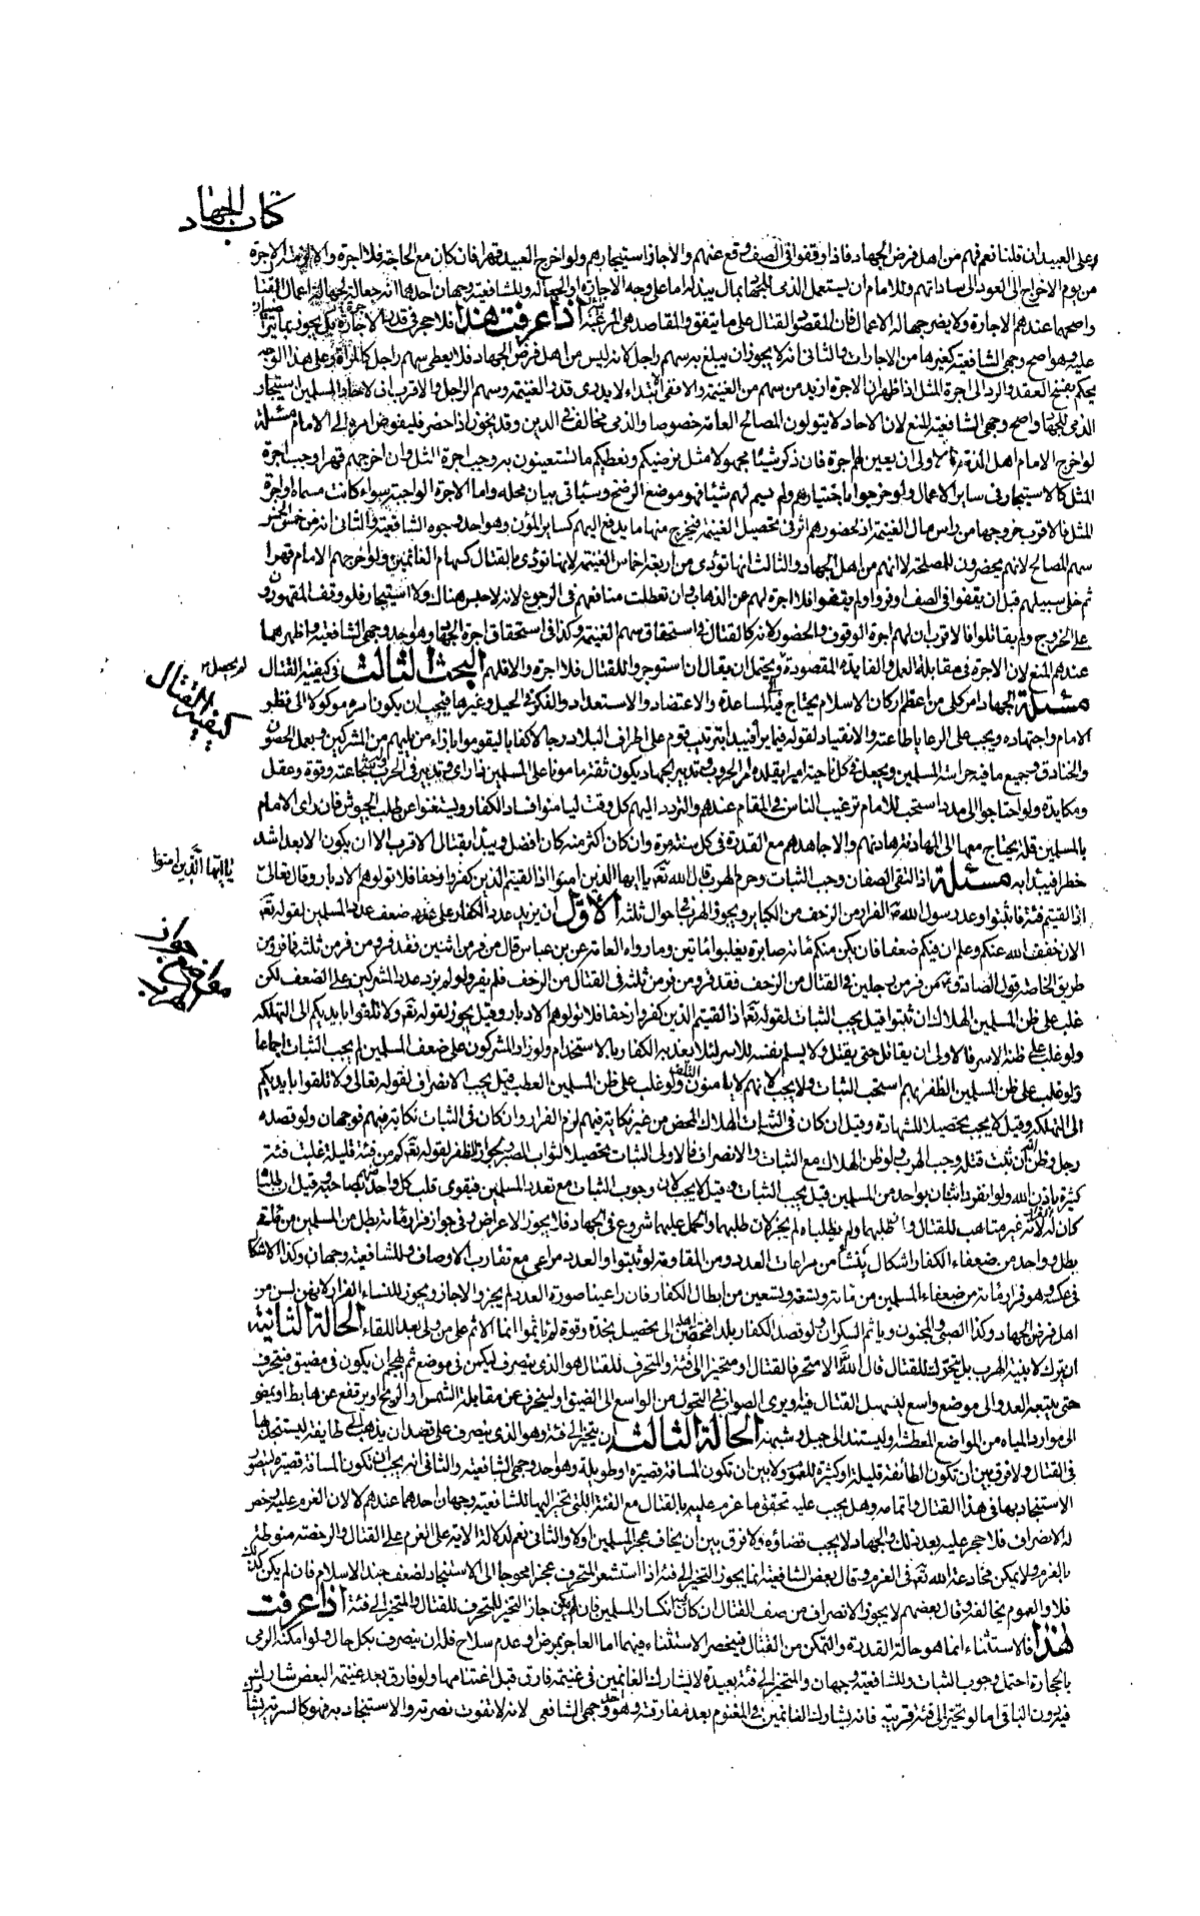 كتاب الجهاد
على العبيد ان قلنا نعم فهم من اهل فرض الجهاد فاذا وقفوا فى الصف وقع عنهم والا جاز استيجارهم ولو اخرج العبيد قهرا فان كان مع الحاجة فلا اجرة والا لزمته الاجرة
من يوم الاخراج الى العود الى ساداتهم وللامام ان يستعمل الذمى للجهاد بمال يبذله اما على وجه الاجارة او الجعالة وللشافعية وجهان احدهما انه جعالة لجهالة اعمال القتال
واصحهما عندهم الاجارة ولا يضر جهالة الاعمال فان المقصود القتال على ما يتفق والمقاصد هى المرعية اذا عرفت هذا فلا حجر فى قدر الاجارة بل يجوز بما تراضيا
عليه وهو اصح وجهى الشافعية كغيرها من الاجارات والثانى انه لا يجوز ان يبلغ به سهم راجل لانه ليس من اهل فرض الجهاد فلا يعطى سهم راجل كالمراة وعلى هذا الوجه
يحكم بفسخ العقد والرد الى اجرة المثل اذا ظهر ان الاجرة ازيد من سهم من الغنيمة والا ففى الابتداء لا يدرى قدر الغنيمة وسهم الراجل والاقرب انه لاحاد المسلمين استيجار
الذمى للجهاد اصح وجهى الشافعية المنع لان الاحاد لا يتولون المصالح العامة خصوصا والذمى مخالف فى الدين وقد يخون اذا حضر فليفوض امره الى الامام مسئلة
لو اخرج الامام اهل الذمة فالاولى ان يعين لهم اجرة فان ذكر شيئا مجهولا مثل نرضيكم ونعطيكم ما تستعينون به وجب اجرة المثل وان اخرجهم قهرا وجب اجرة
المثل كالاستيجار فى ساير الاعمال ولو خرجوا باختيارهم ولم يسم لهم شيئا فهو موضع الرضخ وسياتى بيان محله واما الاجرة الواجبة سواء كانت مسماة او اجرة
المثل فالاقرب خروجها من راس مال الغنيمة اذ لحضورهم اثر فى تحصيل الغنيمة فيخرج منها ما يدفع اليهم كساير المؤن وهو احد وجوه الشافعية والثانى انه من خمس الخمس
سهم المصالح لانهم يحضرون للمصلحة لا انهم من اهل الجهاد والثالث انها تؤدى من اربعة اخماس الغنيمة لانها تؤدى بالقتال كسهام الغانمين ولو اخرجهم الامام قهرا
ثم خلى سبيلهم قبل ان يقفوا فى الصف او فروا ولم يقفوا فلا اجرة لهم عن الذهاب وان تعطلت منافعهم فى الرجوع لانه لا حبس هناك ولا استيجار فلو وقف المقهورون
على الخروج ولم يقاتلوا فالاقرب ان لهم اجرة الوقوف والحضور لانه كالقتال فى استحقاق سهم الغنيمة وكذا فى استحقاق اجرة الجهاد وهو احد وجهى الشافعية واظهرهما
عندهم المنع لان الاجرة فى مقابلة العمل والفايدة المقصودة لم يحصل ويحتمل ان يقال ان استوجروا للقتال فلا اجرة والا فلهم البحث الثالث فى كيفية القتال
كيفية القتال
مسئلة الجهاد امر كلى من اعظم اركان الاسلام يحتاج فيه الى المساعدة والاعتضاد والاستعداد والفكر فى الحيل وغيرها فيجب ان يكون امره موكولا الى نظر
الامام واجتهاده ويجب على الرعايا طاعته والانقياد لقوله فيما يراه فيبدا بترتيب قوم على اطراف البلاد رجالا كفايا ليقوموا بازاء من يليهم من المشركين وبعمل الحصون
والخنادق وجميع ما فيه حراسة المسلمين ويجعل فى كل ناحية اميرا يقلده امر الحروب وتدبير الجهاد يكون ثقة مامونا على المسلمين ذا راى وتدبير فى الحرب وشجاعة وقوة وعقل
ومكايدة ولو احتاجوا الى مدد استحب للامام ترغيب الناس فى المقام عندهم والتردد اليهم كل وقت ليامنوا فساد الكفار ويستغنوا عن طلب الجيوش فان راى الامام
بالمسلمين قلة يحتاج معها الى المهادنة هادنهم والا جاهدهم مع القدرة فى كل سنة مرة وان كان اكثر منه كان افضل ويبدا بقتال الاقرب الا ان يكون الابعد اشد
خطرا فيبدا به مسئلة اذا التقى الصفان وجب الثبات وحرم الهرب قال الله تعه يا ايها الذين امنوا اذا لقيتم الذين كفروا زحفا فلا تولوهم الادبار وقال تعالى
يا ايها الذين امنوا
اذا لقيتم فئة فاثبتوا وعد رسول الله ص الفرار من الزحف من الكباير ويجوز الهرب فى احوال ثلثة الاول ان يزيد عدد الكفار على عدد ضعف عدد المسلمين لقوله تعه
الان خفف الله عنكم وعلم ان فيكم ضعفا فان يكن منكم مائة صابرة يغلبوا مائتين وما رواه العامة عن بن عباس قال من فر من اثنين فقد فر ومن فر من ثلثة فما فر ومن
طريق الخاصة قول الصادق ع من فر من رجلين فى القتال من الزحف فقد فر ومن فر من ثلثة فى القتال من الزحف فلم يفر ولو لم يزد عدد المشركين على الضعف لكن
غلب على ظن المسلمين الهلاك ان ثبتوا قيل يجب الثبات لقوله تعه اذا لقيتم الذين كفروا زحفا فلا تولوهم الادبار وقيل يجوز لقوله تعه ولا تلقوا بايديكم الى التهلكة
ولو غلب على ظنه الاسر فالاولى ان يقاتل حتى يقتل ولا يسلم نفسه للاسر لئلا يعذبه الكفار بالاستخدام ولو زاد المشركون على ضعف المسلمين لم يجب الثبات اجماعا
ولو غلب على ظن المسلمين الظفر بهم استحب الثبات ولا يجب لانهم لا يامنون التلف ولو غلب على ظن المسلمين العطب قيل يجب الانصراف لقوله تعالى ولا تلقوا بايديكم
الى التهلكة وقيل لا يجب تحصيلا للشهادة وقيل ان كان فى الثبات الهلاك المحض من غير نكاية فيهم لزم الفرار وان كان فى الثبات نكاية فيهم فوجهان ولو قصده
رجل وظن انه ان ثبت قتله وجب الهرب ولو ظن الهلاك مع الثبات والانصراف فالاولى الثبات تحصيلا لثواب الصبر ولجواز الظفر لقوله تعه كم من فئة قليلة غلبت فئة
كثيرة باذن الله ولو انفرد اثنان بواحد من المسلمين قيل يجب الثبات وقيل لا يجب لان وجوب الثبات مع تعدد المسلمين فيقوى قلب كل واحد منهم بصاحبه وقيل ان طلباه
كان له الفرار لانه غير متاهب للقتال وان طلبهما ولم يطلباه لم يجز لان طلبهما والحمل عليهما شروع فى الجهاد فلا يجوز الاعراض وفى جواز فرار مائة بطل من المسلمين من مائتى
بطل وواحد من ضعفاء الكفار اشكال ينشا من مراعات العدد ومن المقاومة لو ثبتوا والعدد مراعى مع تقارب الاوصاف وللشافعية وجهان وكذا الاشكال
فى عكسه وهو فرار مائة من ضعفاء المسلمين من مائة وتسعة وتسعين من ابطال الكفار فان راعينا صورة العدد لم يجز والا جاز ويجوز للنساء الفرار لانهن لسن من
اهل فرض الجهاد وكذا الصبى والمجنون وياثم السكران ولو قصد الكفار بلدا فتحصن اهله الى تحصيل نجدة وقوة لم ياثموا انما الاثم على من ولى بعد اللقاء الحالة الثانية
ان يترك لا بنية الهرب بل يتحرف للقتال قال الله الا متحرفا لقتال او متحيزا الى فئة والمتحرف للقتال هو الذى ينصرف ليكمن فى موضع ثم يهجم او يكون فى مضيق فيتحرف
حتى يتبعه العدو الى موضع واسع ليسهل القتال فيه او يرى الصواب فى التحول من الواسع الى الضيق او لينحرف عن مقابلة الشمس او الريح او يرتفع عن هابط او يمضى
الى موارد المياه من المواضع المعطشة او ليستند الى جبل وشبهه الحالة الثالثة ان يتحيز الى فئة وهو الذى ينصرف على قصد ان يذهب الى طايفة ليستنجد بها
فى القتال ولا فرق بين ان تكون الطائفة قليلة او كثيرة للعموم ولا بين ان تكون المسافة قصيرة او طويلة وهو احد وجهى الشافعية والثانى انه يجب ان تكون المسافة قصيرة ليتصور
الاستنجاد بها فى هذا القتال واتمامه وهل يجب عليه تحقق ما عزم عليه بالقتال مع الفئة اللتى تحيز اليها للشافعية وجهان احدهما عندهم لا لان العزم عليه رخص
له الانصراف فلا حجر عليه بعد ذلك والجهاد لا يجب قضاؤه ولا فرق بين ان يخاف عجز المسلمين اولا والثانى نعم لدلالة الاية على العزم على القتال والرخصة منوطة
بالعزم ولا يمكن مخادعة الله تعه فى العزم وقال بعض الشافعية انما يجوز التحيز الى فئة اذا استشعر المتحرف عجزا محوجا الى الاستنجاد لضعف جند الاسلام فان لم يكن كذلك
فلا والعموم يخالفه وقال بعضهم لا يجوز الانصراف من صف القتال ان كان فيه انكسار المسلمين فان لم يكن جاز التحيز للمتحرف للقتال والمتحيز الى فئة اذا عرفت
هذا فالاستثناء انما هو حالة القدرة والتمكن من القتال فينحصر الاستثناء فيهما اما العاجز بمرض او عدم سلاح فله ان ينصرف بكل حال ولو امكنه الرمى
بالحجارة احتمل وجوب الثبات وللشافعية وجهان والمتحيز الى فئة بعيدة لا يشارك الغانمين فى غنيمة فارق قبل اغتنامها ولو فارق بعد غنيمة البعض شارك
فيه دون الباقى اما لو تحيز الى فئة قريبة فانه يشارك الغانمين فى المغنوم بعد مفارقته وهو احد وجهى الشافعى لانه لا تفوت نصرته والاستنجاد به فهو كالسرية